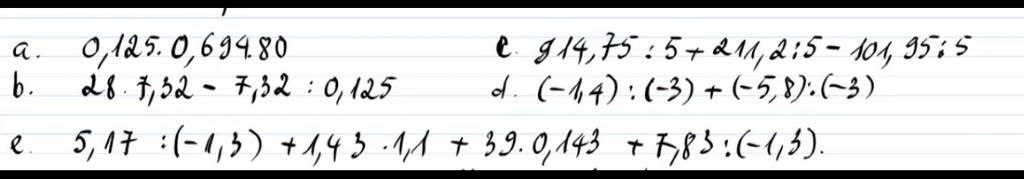 a. 0,125.0,694.80 c. 914,75 : 5 + 211,2 : 5 - 101,95 : 5
b. 28.7,32 - 7,32 : 0,125 d. (-1,4) : (-3) + (-5,8) : (-3)
e. 5,17 : (-1,3) + 1,43 . 1,1 + 39. 0,143 + 7,83 : (-1,3).